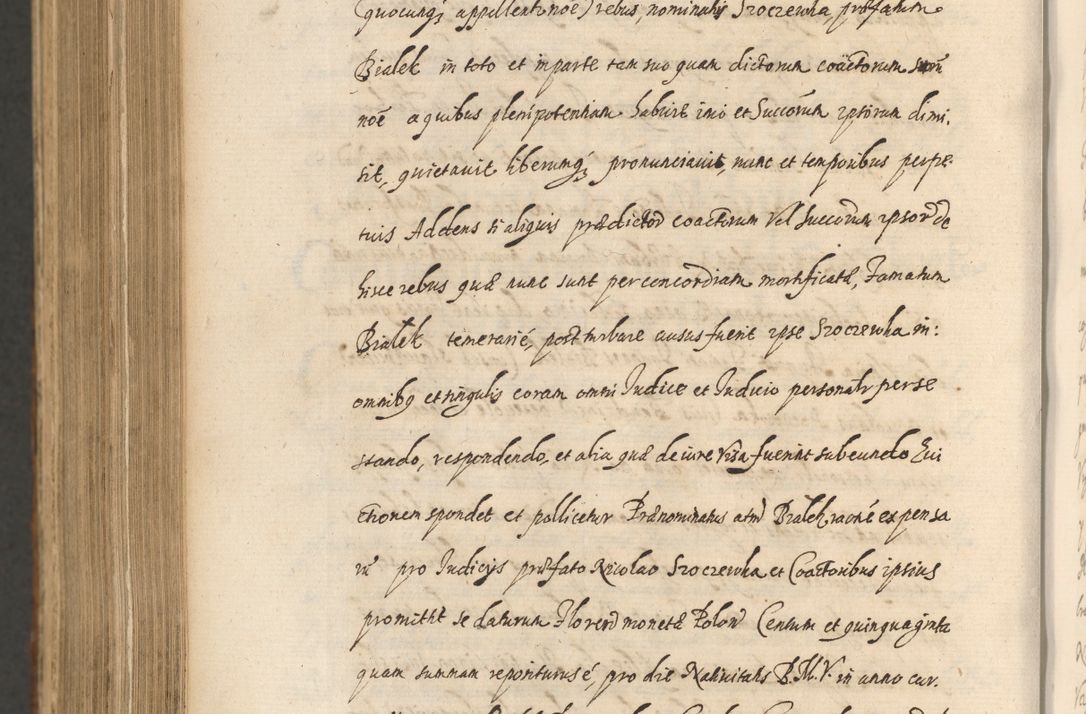 (quocunq; appellent: noe) rebus, nominatis Sroczewka, præfatum
Bialek in toto et in parte tam suo quam dictorum coactorum suorū
nōe a quibus plenipotentiam habuit imo et Succorum ipsorum dimi,
sit, quietavit liberumq; pronunciavit, nunc et temporibus perpe
tuis Addens si aliquis prædictor coactorum Vel Succorum ipsor de
hisce rebus quæ nunc sunt per concordiam mortificatæ, Famatum
Bialek temerarié, post turbare ausus fuerit ipse Sroczewka in:
omnibq et singulis coram omni Judice et Judicio personalr per se
stando, respondendo, et alia quæ de iure visa fuerint subeundo Evi
ctionem spondet et pollicetur Prænominatus atm Bialek raōné expensa
rū pro Judicijs præfato Nicolao Sroczewka et Coactoribus ipsius
promittit se daturum Floren monetæ Polon Centum et quinquaginta
quam summam repoñturus é, pro die Nativitatis B.M.V. in anno cur.